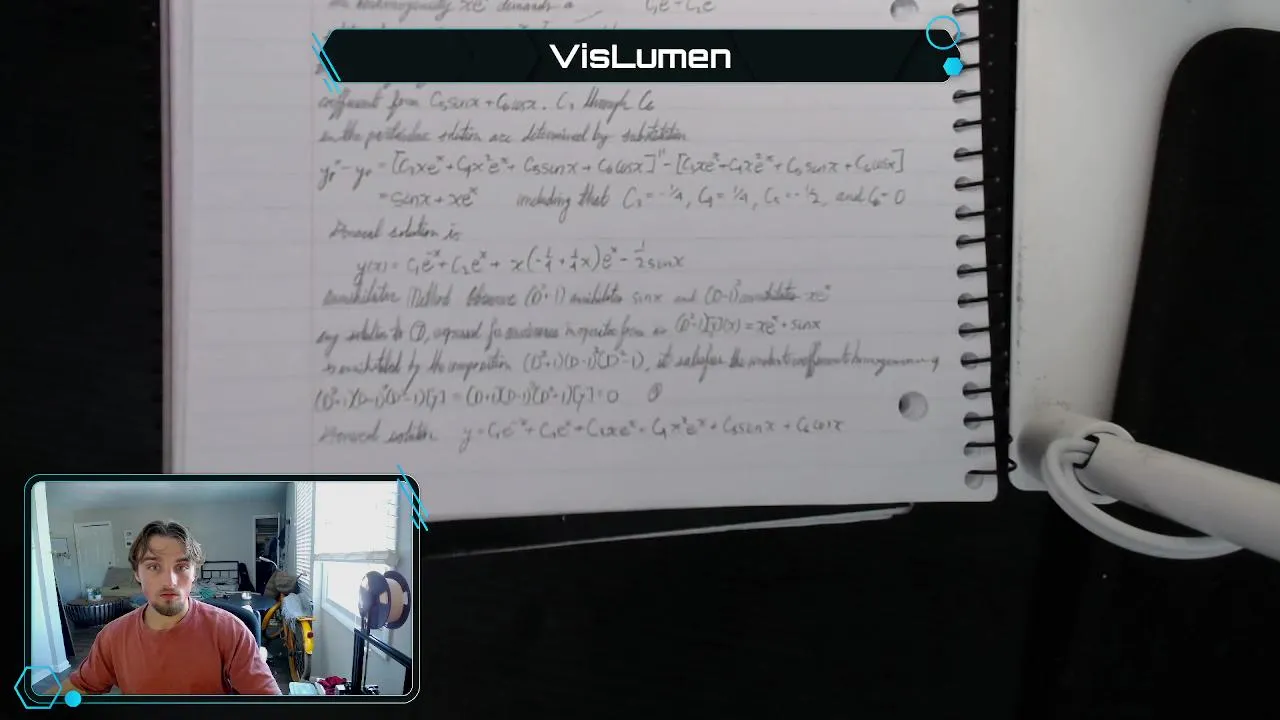 VisLumen
coefficient form C₅sinx + C₆cosx. C₃ through C₆
in the particular solution are determined by substitution
yₚ'' - yₚ = [C₃xeˣ + C₄x²eˣ + C₅sinx + C₆cosx]'' - [C₃xeˣ + C₄x²eˣ + C₅sinx + C₆cosx]
= sinx + xeˣ including that C₃ = -1/4, C₄ = 1/4, C₅ = -1/2, and C₆ = 0
General solution is
y(x) = C₁e⁻ˣ + C₂eˣ + x(-1/4 + 1/4x)eˣ - 1/2 sinx
Annihilator Method Observe (D²+1) annihilates sinx and (D-1)² annihilates xeˣ
any solution to ①, expressed for convenience in operator form as (D²-1)[y](x) = xeˣ + sinx
is annihilated by the composition (D²+1)(D-1)²(D²-1), it satisfies the constant coefficient homogeneous
(D²+1)(D-1)²(D²-1)[y] = (D+1)(D-1)³(D²+1)[y] = 0
General solution y = C₁e⁻ˣ + C₂eˣ + C₃xeˣ + C₄x²eˣ + C₅sinx + C₆cosx